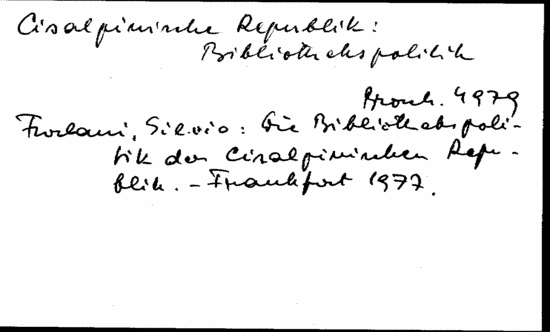 Cisalpinische Republik:
Bibliothekspolitik
Brosch. 4979
Furlani, Silvio: Die Bibliothekspoli-
tik der Cisalpinischen Repu-
blik. - Frankfurt 1977.